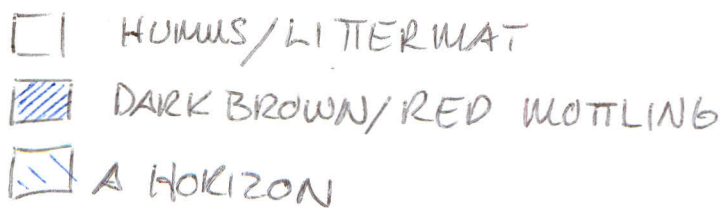 HUMUS/LITTERMAT
DARK BROWN/RED MOTTLING
A HORIZON